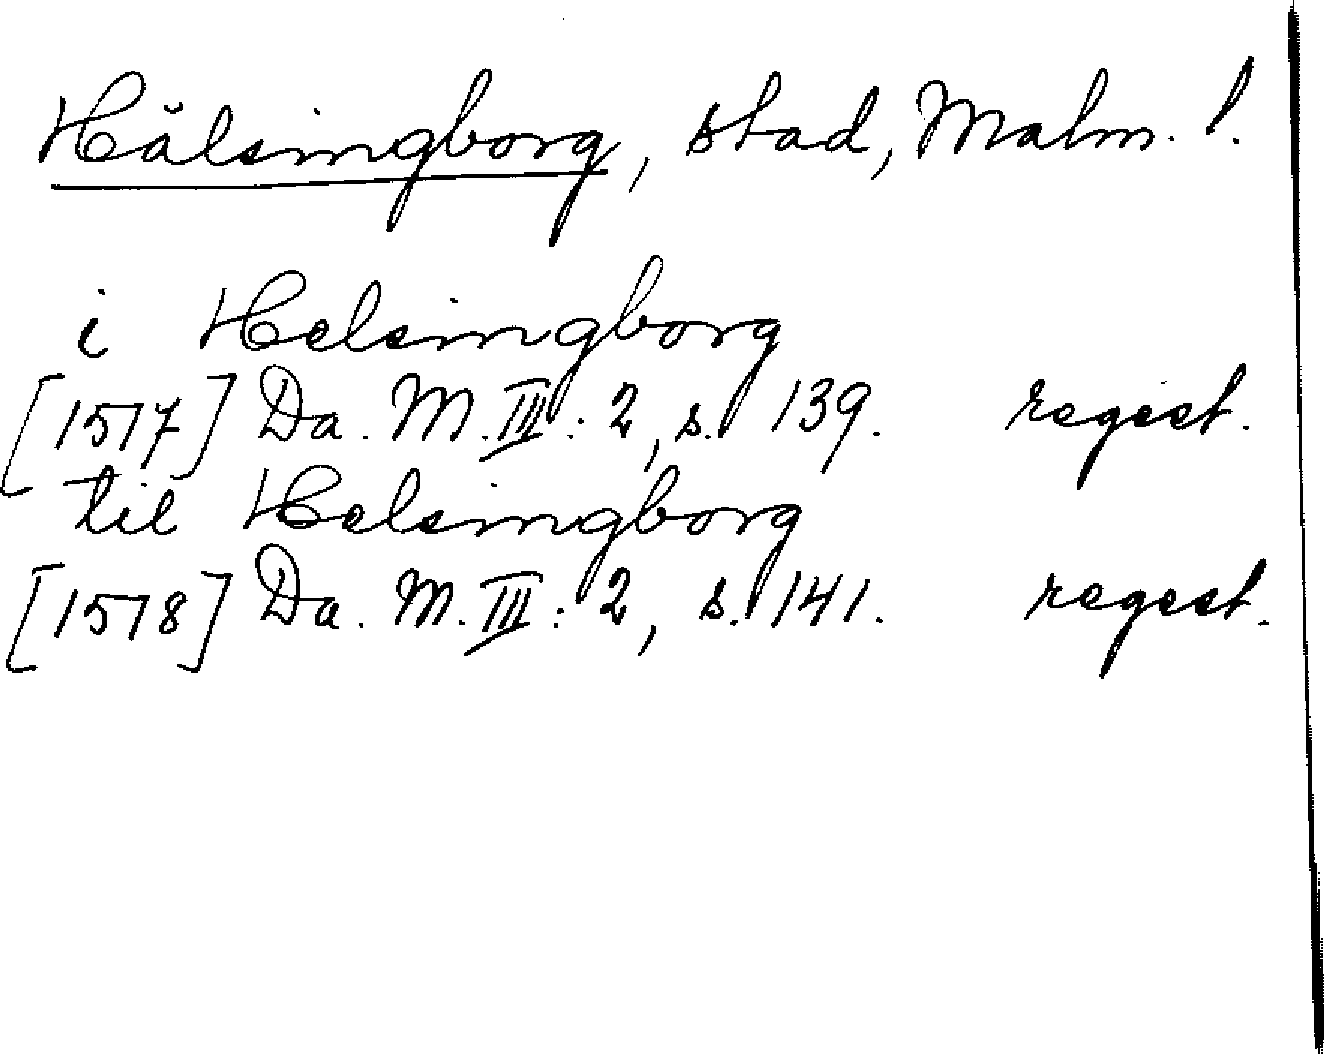 Hälsingborg, stad, Malm. l.
i Helsingborg
[1517] Da. M. III: 2, s. 139. regest.
til Helsingborg
[1518] Da. M. III: 2, s. 141. regest.